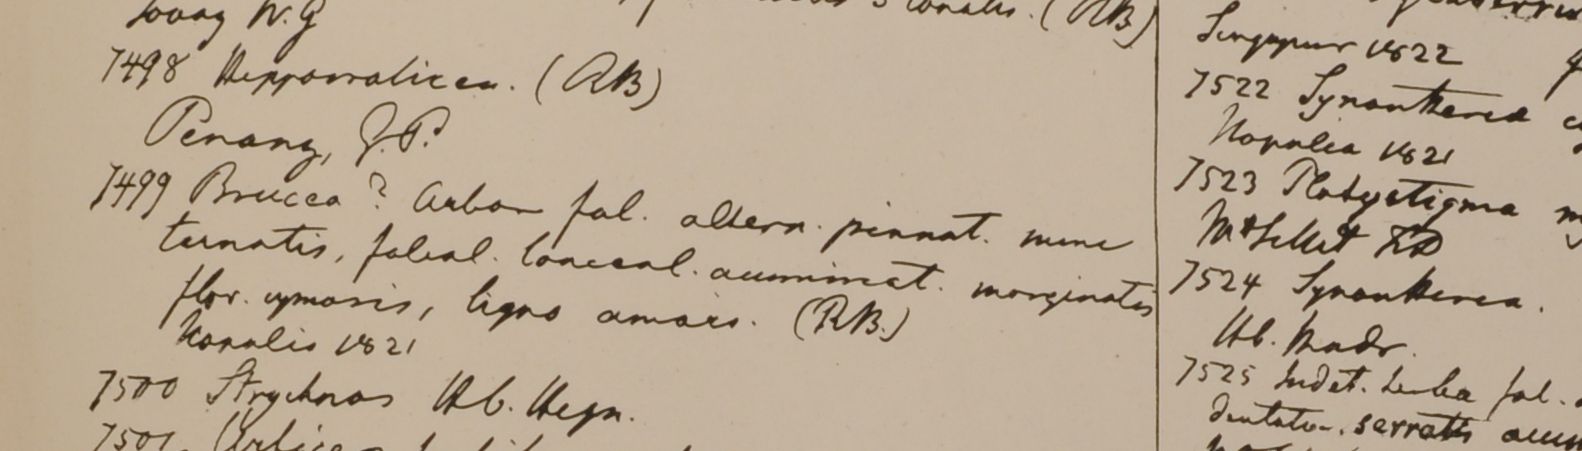 7498 Hippocraticea. (RB)
Penang, G.P.
7499 Brucea? Arbor fol. altern. pinnat. nunc
ternatis, foliol. lanceol. acuminat. marginatis
flor. cymosis, ligno amaro. (RB.)
Napalia 1821
7500 Strychnos Hb. Heyn.
7501
(RB)
Singapur 1822
7522 Synantherea
Napalia 1821
7523 Platystigma
7524 Synantherea.
Hb. Madr.
7525 Indet. herba fol.
dentato-serratis